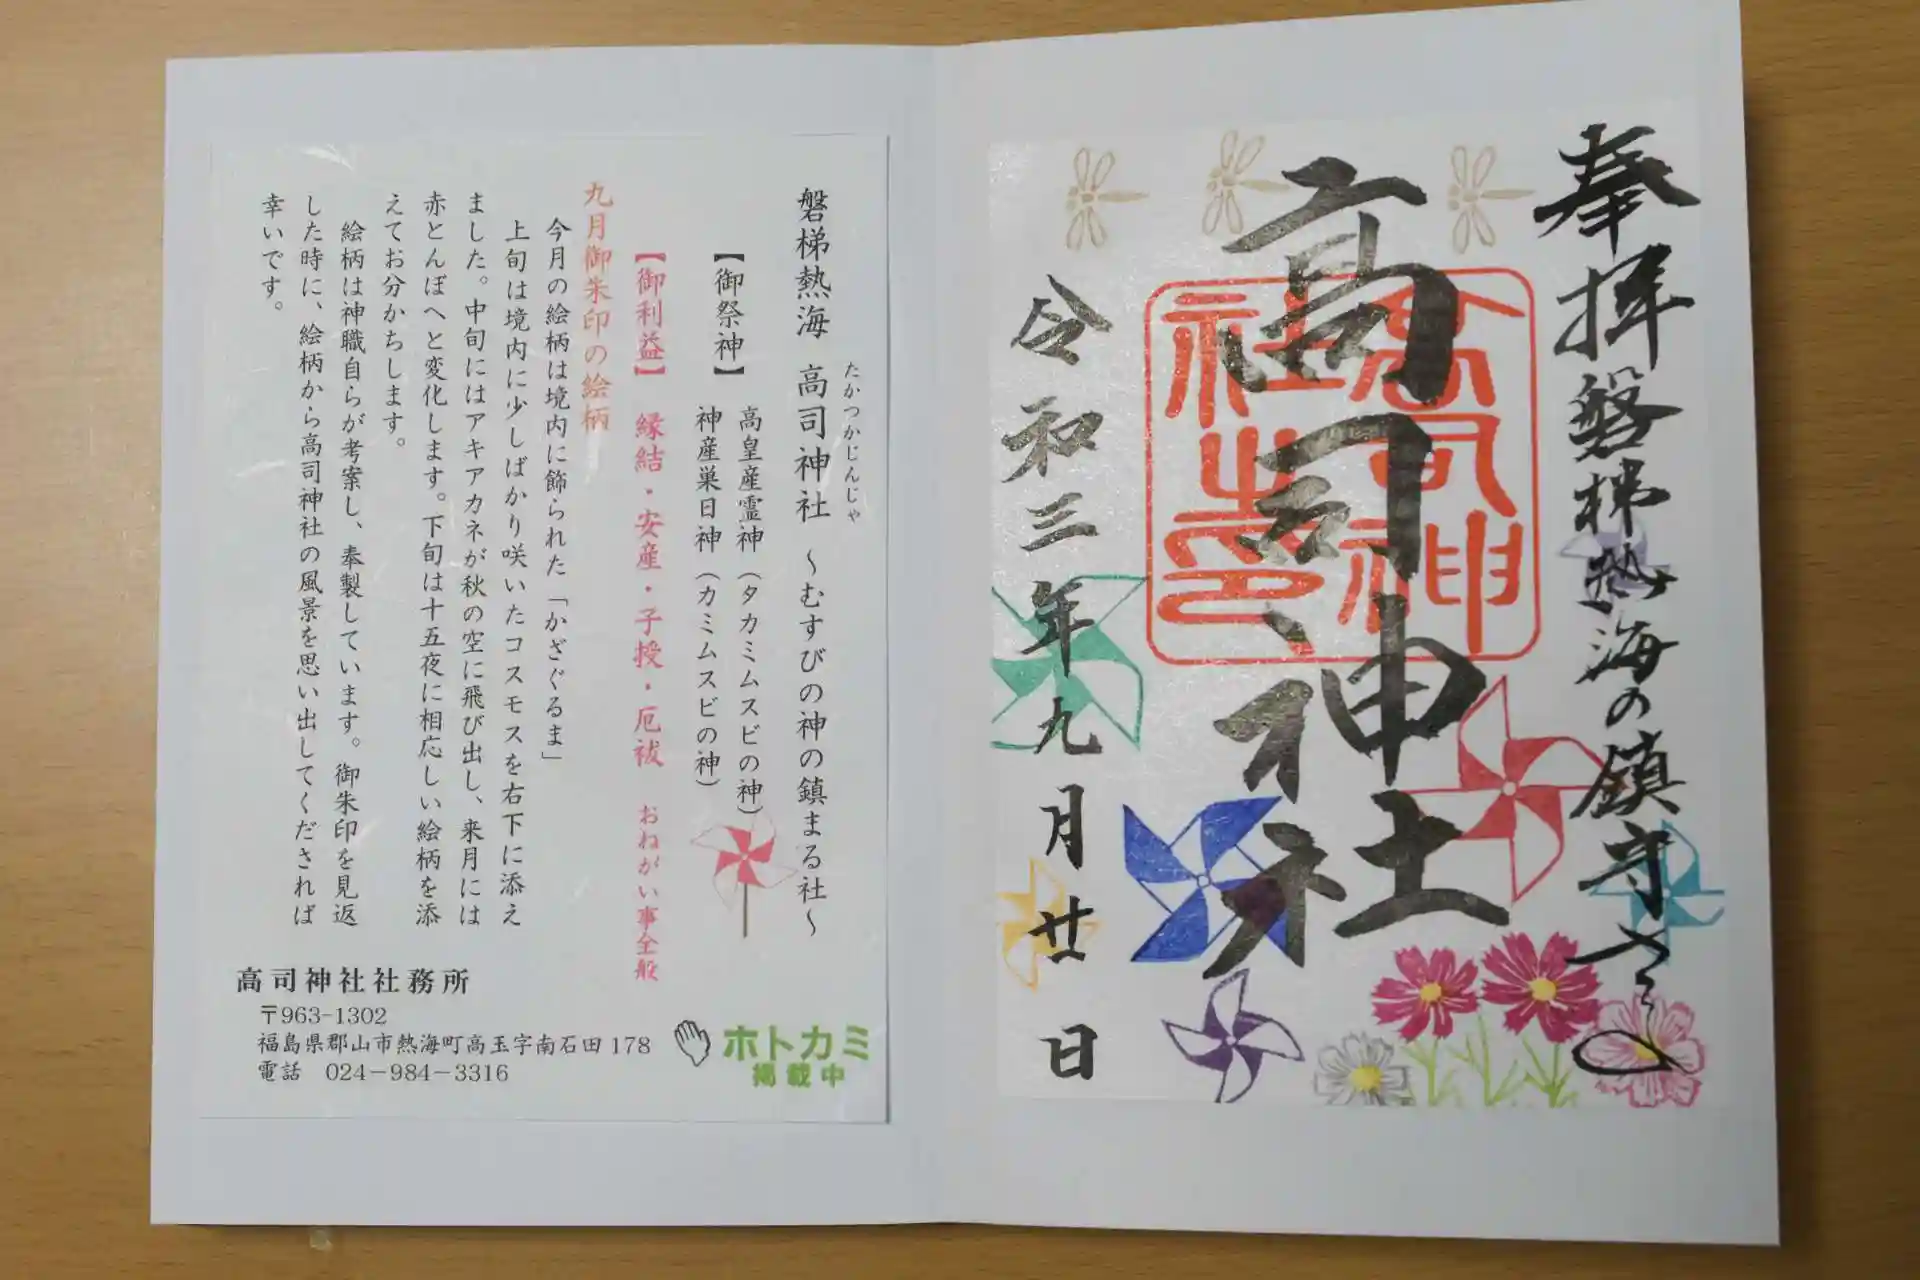 奉拝 磐梯熱海の鎮守さま
高司神社
高司神社之印
令和三年九月廿日
磐梯熱海 高司神社 ～むすびの神の鎮まる社～
たかつかじんじゃ
【御祭神】 高皇産霊神（タカミムスビの神）
神産巣日神（カミムスビの神）
【御利益】 縁結・安産・子授・厄祓 おねがい事全般
九月御朱印の絵柄
今月の絵柄は境内に飾られた「かざぐるま」
上旬は境内に少しばかり咲いたコスモスを右下に添え
ました。中旬にはアキアカネが秋の空に飛び出し、来月には
赤とんぼへと変化します。下旬は十五夜に相応しい絵柄を添
えてお分かちします。
絵柄は神職自らが考案し、奉製しています。御朱印を見返
した時に、絵柄から高司神社の風景を思い出してくだされば
幸いです。
高司神社社務所
〒963-1302
福島県郡山市熱海町高玉字南石田178
電話 024－984－3316
ホトカミ
掲載中